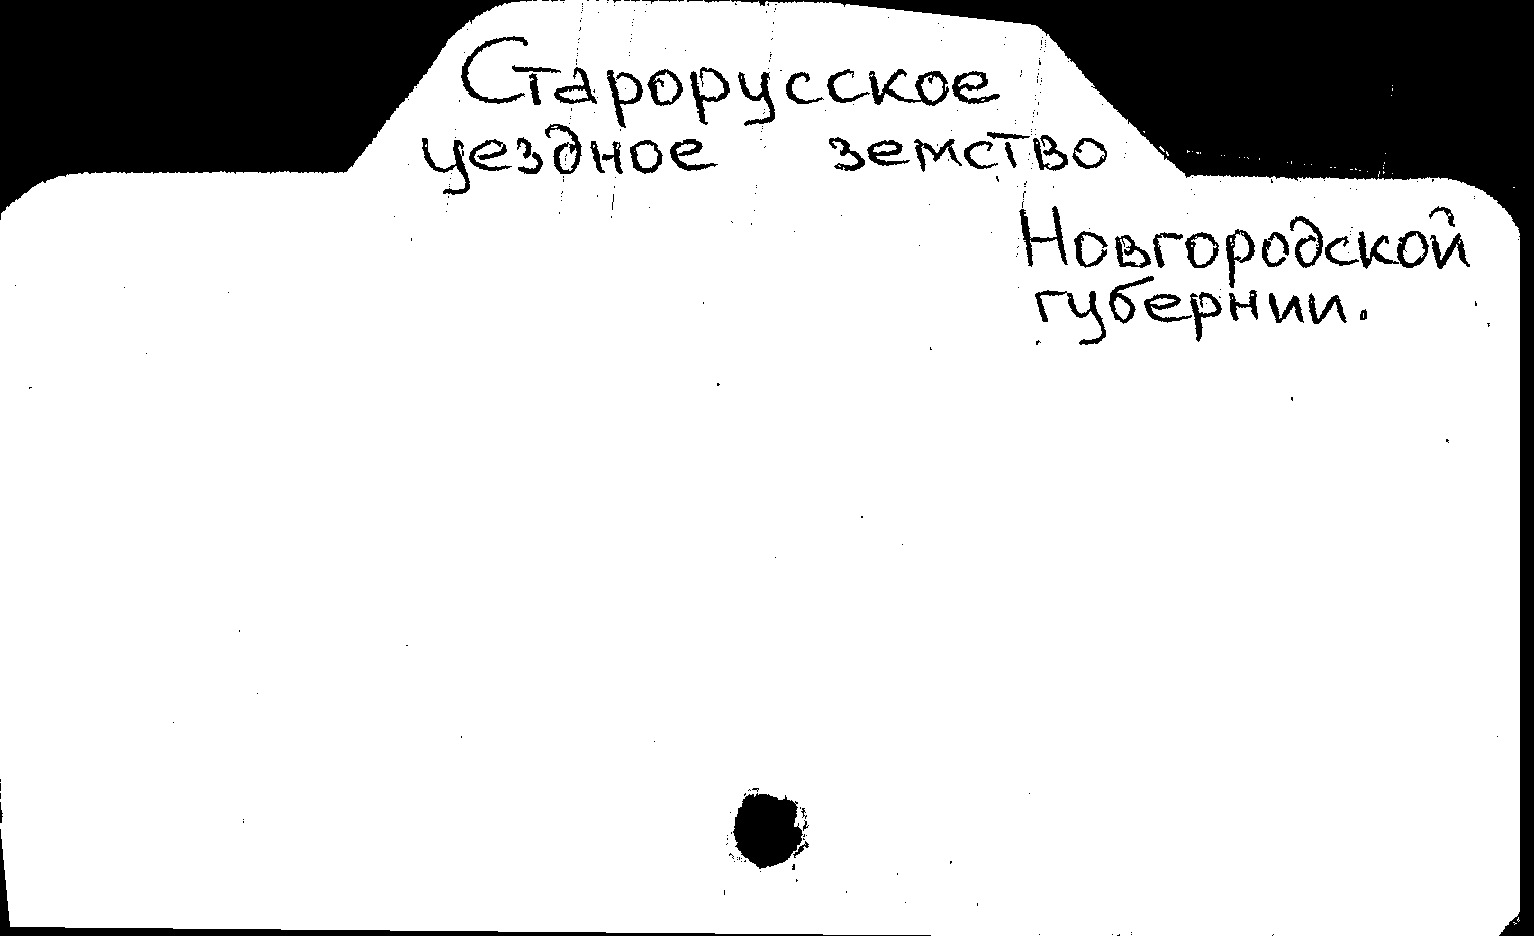 Старорусское
уездное земство
Новгородской
губернии.